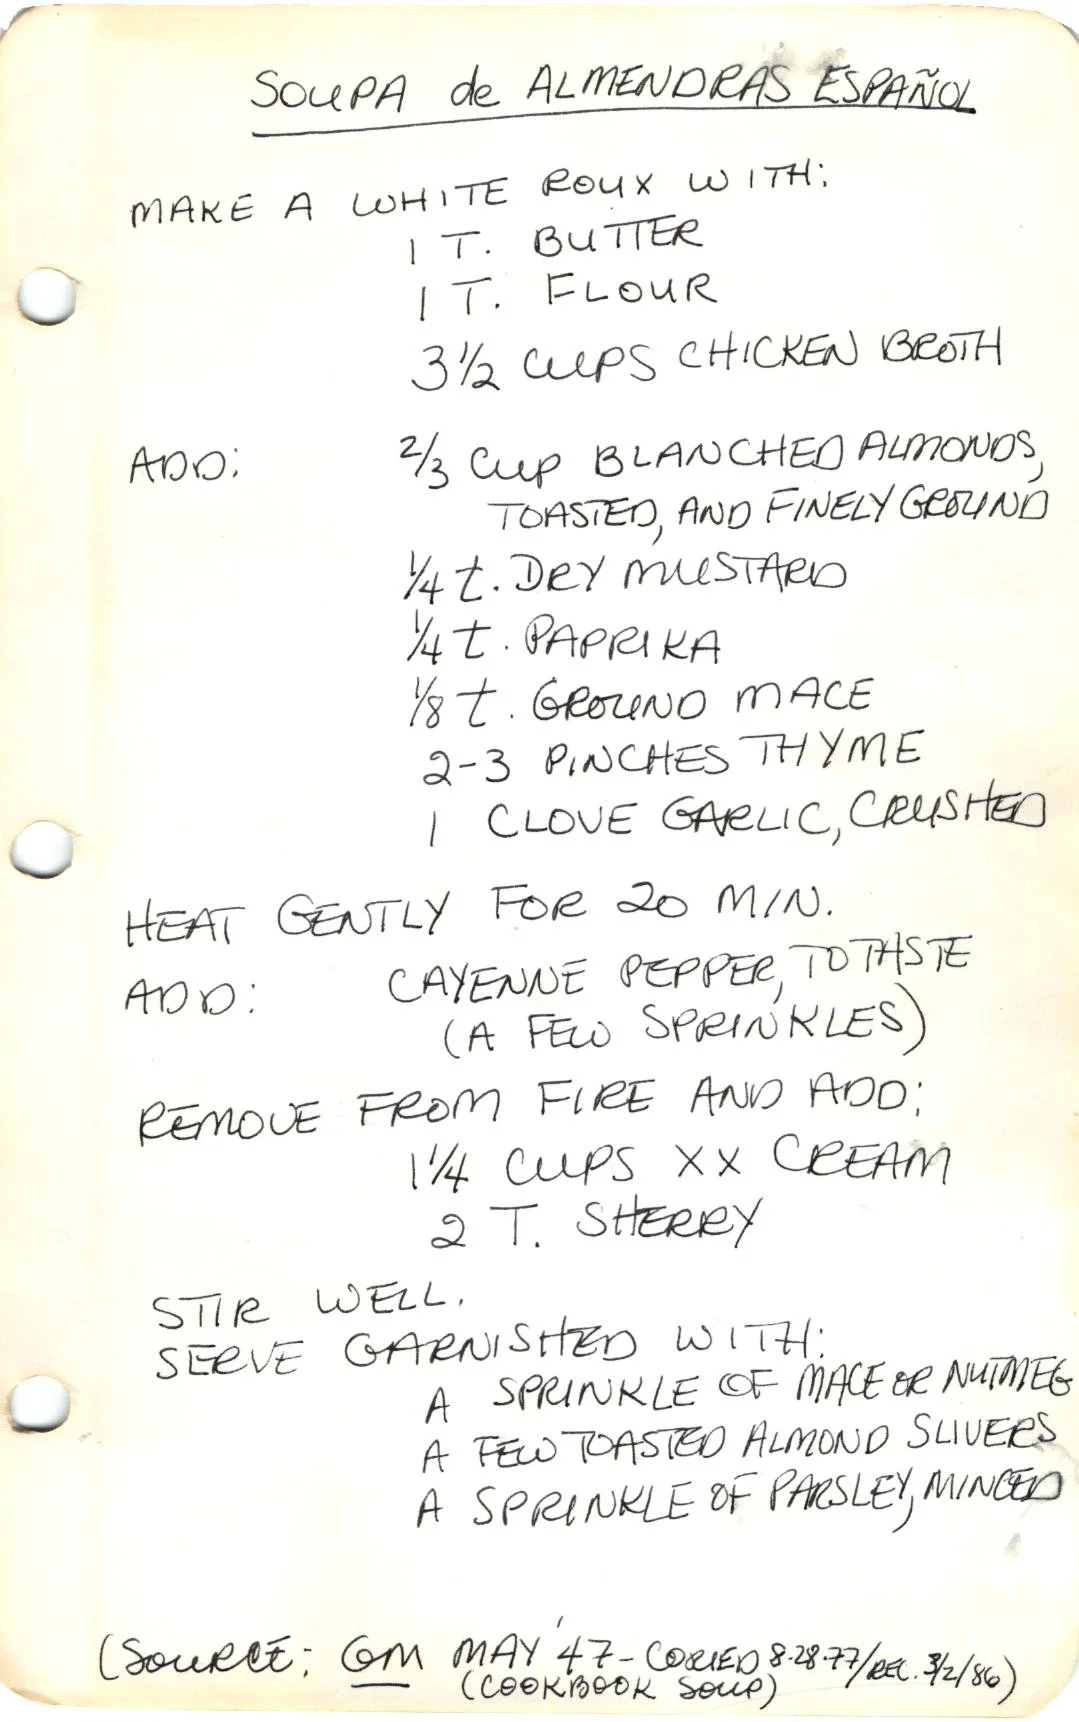 SOUPA de ALMENDRAS ESPAÑOL
MAKE A WHITE ROUX WITH:
1 T. BUTTER
1 T. FLOUR
3 1/2 CUPS CHICKEN BROTH
ADD: 2/3 CUP BLANCHED ALMONDS,
TOASTED, AND FINELY GROUND
1/4 t. DRY MUSTARD
1/4 t. PAPRIKA
1/8 t. GROUND MACE
2-3 PINCHES THYME
1 CLOVE GARLIC, CRUSHED
HEAT GENTLY FOR 20 MIN.
ADD: CAYENNE PEPPER, TO TASTE
(A FEW SPRINKLES)
REMOVE FROM FIRE AND ADD:
1 1/4 CUPS XX CREAM
2 T. SHERRY
STIR WELL.
SERVE GARNISHED WITH:
A SPRINKLE OF MACE OR NUTMEG
A FEW TOASTED ALMOND SLIVERS
A SPRINKLE OF PARSLEY, MINCED
(SOURCE: GM MAY '47 - COPIED 8-28-77/REC. 3/2/86)
(COOKBOOK SOUP)